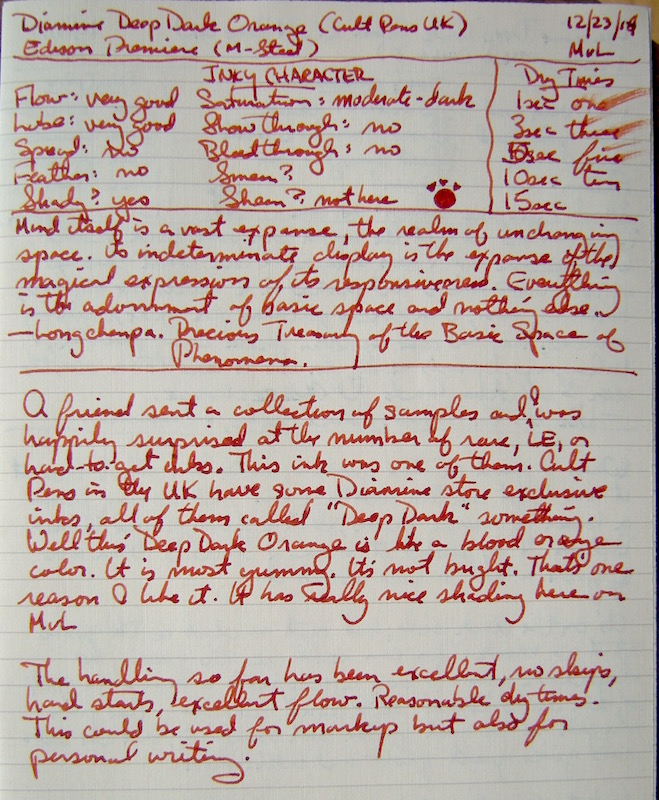 Diamine Deep Dark Orange (Cult Pens UK) 12/23/18
Edison Premiere (M-Steel) MvL
INKY CHARACTER
Flow: very good Saturation: moderate-dark
Lube: very good Show through: no
Spread: no Bleedthrough: no
Feather: no Smear?
Shady? yes Sheen? not here
Dry Times
1sec one
3sec three
5sec five
10sec ten
15sec
Mind itself is a vast expanse, the realm of unchanging
space. Its indeterminate display is the expanse of the
magical expressions of its responsiveness. Everything
is the adornment of basic space and nothing else.
—Longchenpa. Precious Treasury of the Basic Space of
Phenomena.
A friend sent a collection of samples and I was
happily surprised at the number of rare, LE, or
hard-to-get inks. This ink was one of them. Cult
Pens in the UK have some Diamine store exclusive
inks, all of them called "Deep Dark" something.
Well this Deep Dark Orange is like a blood orange
color. It is most yummy. It's not bright. That's one
reason I like it. It has really nice shading here on
MvL
The handling so far has been excellent, no skips,
hard starts, excellent flow. Reasonable dry times.
This could be used for markup but also for
personal writing.